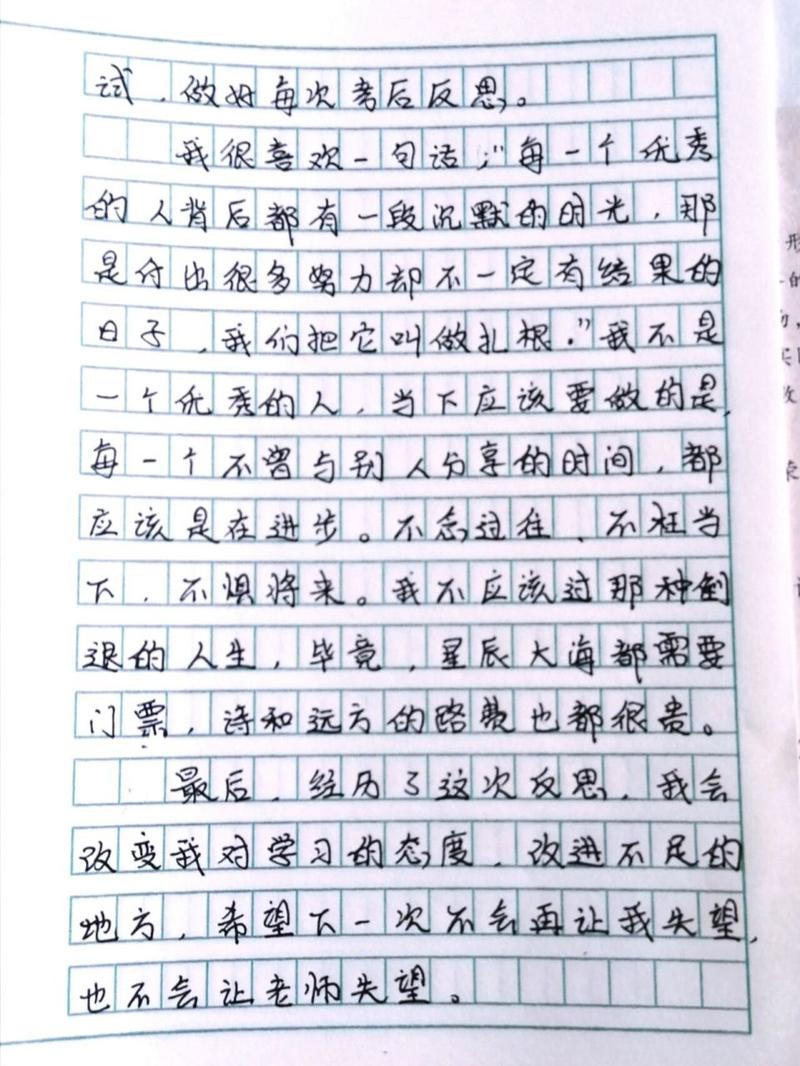 试，做好每次考后反思。
我很喜欢一句话；“每一个优秀
的人背后都有一段沉默的时光，那
是付出很多努力却不一定有结果的
日子，我们把它叫做扎根。”我不是
一个优秀的人，当下应该要做的是，
每一个不曾与别人分享的时间，都
应该是在进步。不念过往，不枉当
下，不惧将来。我不应该过那种倒
退的人生，毕竟，星辰大海都需要
门票，诗和远方的路费也都很贵。
最后，经历了这次反思，我会
改变我对学习的态度，改进不足的
地方，希望下一次不会再让我失望，
也不会让老师失望。